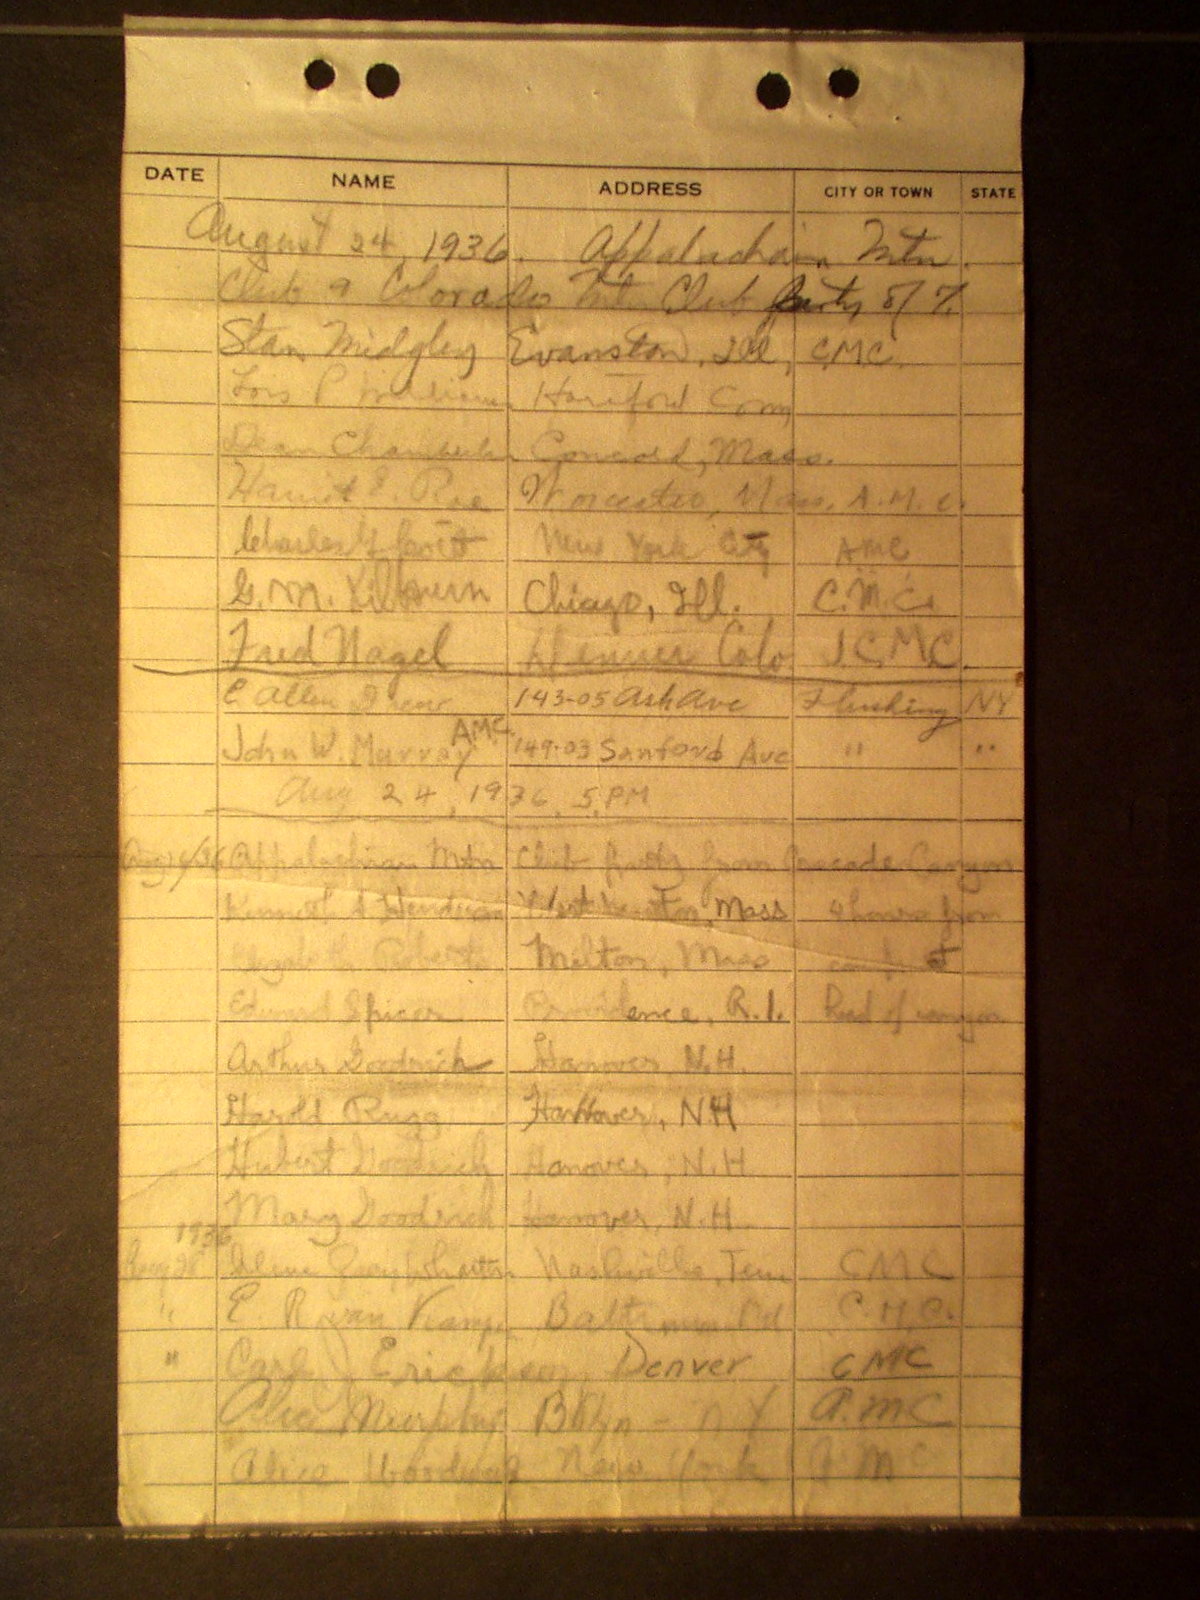 DATE NAME ADDRESS CITY OR TOWN STATE
August 24, 1936. Appalachain Mtn.
Club & Colorado Mt. Club party of 7.
Stan Midgley Evanston, Ill, CMC
Lois P. Hartford Conn
Dean Chamberlin Concord, Mass.
Harriet E. Roe Worcester, Mass. A.M.C.
Charles New York City AMC
G. M. Kilbourn Chicago, Ill. C.M.C.
Fred Nagel Denver Colo J.C.M.C.
E Allen Drew 143-05 Ash Ave Flushing NY
John W. Murray AMC 149-03 Sanford Ave " "
Aug 24, 1936, 5 PM
Appalachian Mtn Club party from Cascade Canyon
Kenneth A Henderson West Newton, Mass 4 hours from
Elizabeth Roberts Milton, Mass camp at
Edward Spicer Providence, R.I. head of canyon
Arthur Goodrich Hanover, N.H.
Harold Rugg Hanover, N.H
Hubert Goodrich Hanover, N.H
Mary Goodrich Hanover, N.H.
1936
Aug 28 Nashville, Tenn CMC
" E. R. van Kamp C.M.C.
" Carl J Erickson, Denver CMC
Alice Murphy Bklyn - N Y A.MC
Alice New York AMC